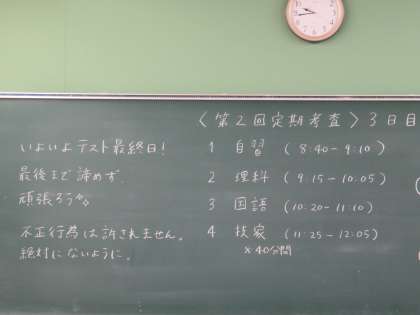 〈第2回定期考査〉3日目
いよいよテスト最終日!
最後まで諦めず、
頑張ろう。
不正行為は許されません。
絶対にないように。
1 自習 (8:40-9:10)
2 理科 (9:15-10:05)
3 国語 (10:20-11:10)
4 技家 (11:25-12:05)
×40分間